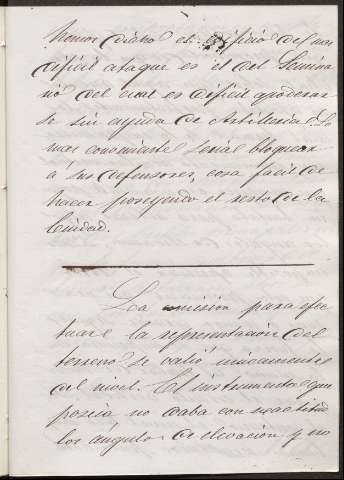 hemos dicho el edificio de mas
dificil ataque es el del Semina
rio del cual es dificil apoderar
se sin ayuda de Artilleria. Lo
mas conveniente seria bloquear
á sus defensores, cosa facil de
hacer poseyendo el resto de la
Ciudad.
La comision para efec
tuar la representacion del
terreno se valió unicamente
del nivel. El instrumento que
poseia no daba con exactitud
los ángulos de elevacion y no